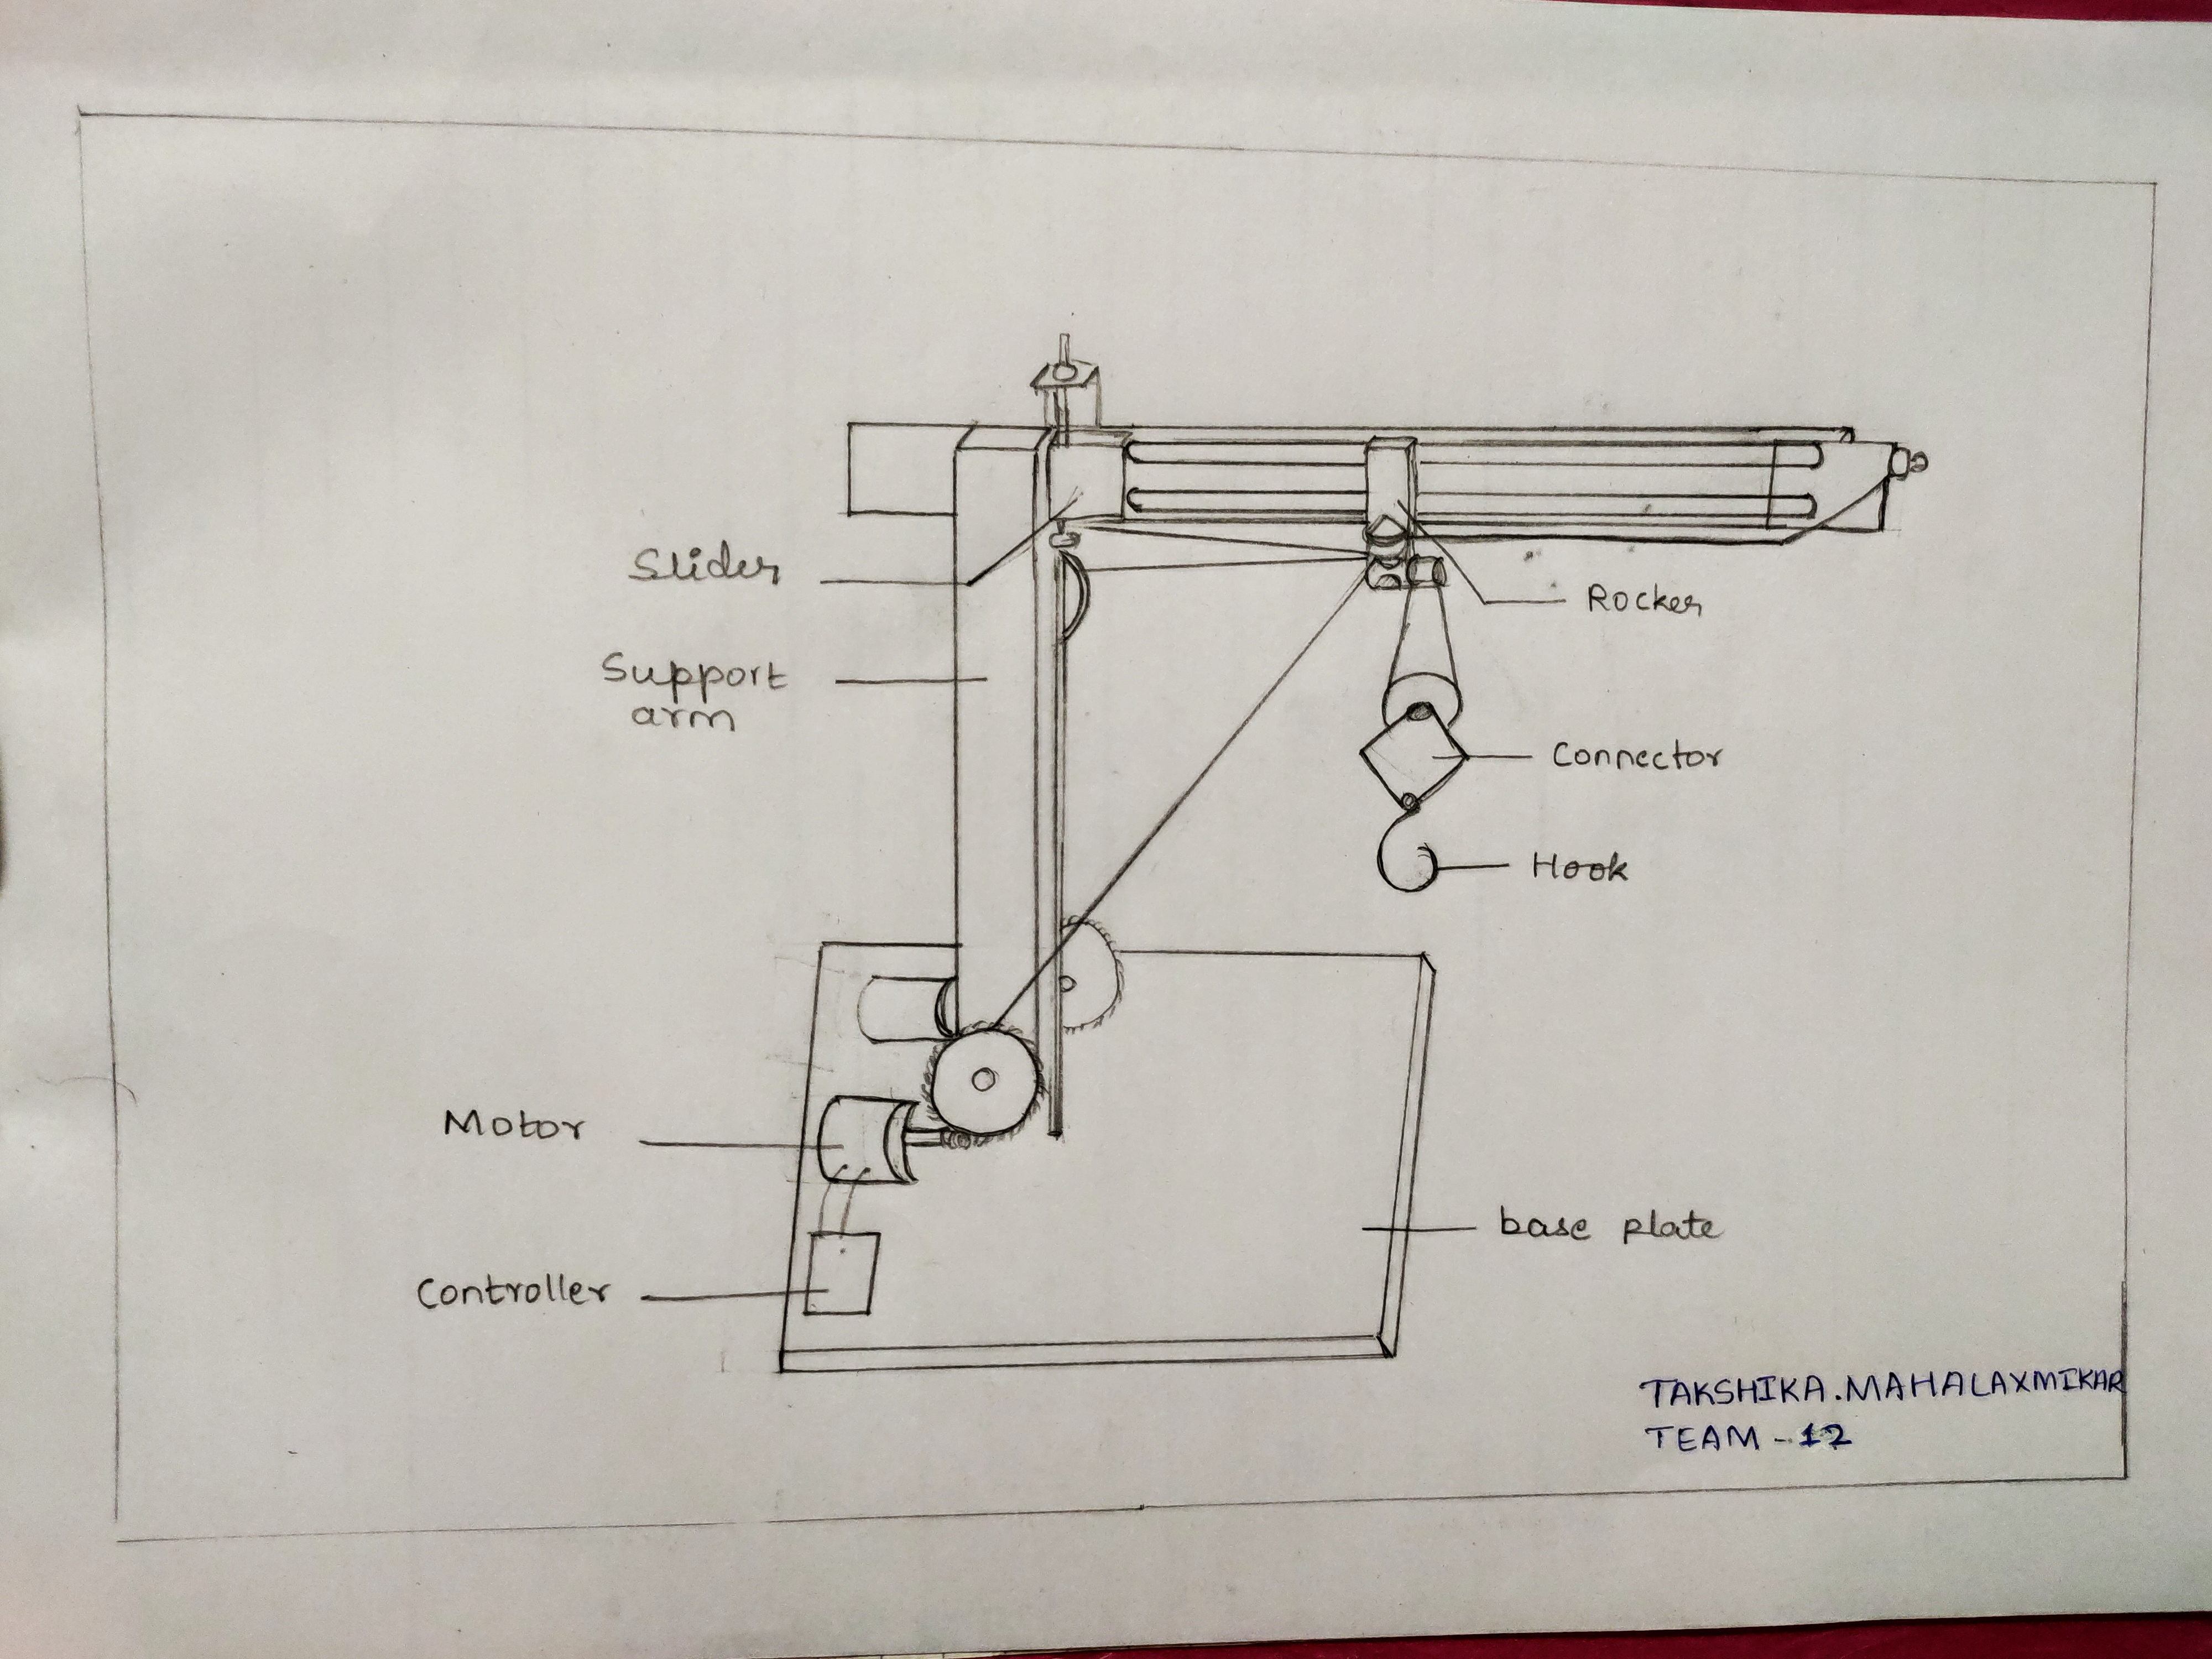 Slider
Rocker
Support
arm
Connector
Hook
Motor
base plate
Controller
TAKSHIKA.MAHALAXMIKAR
TEAM - 12